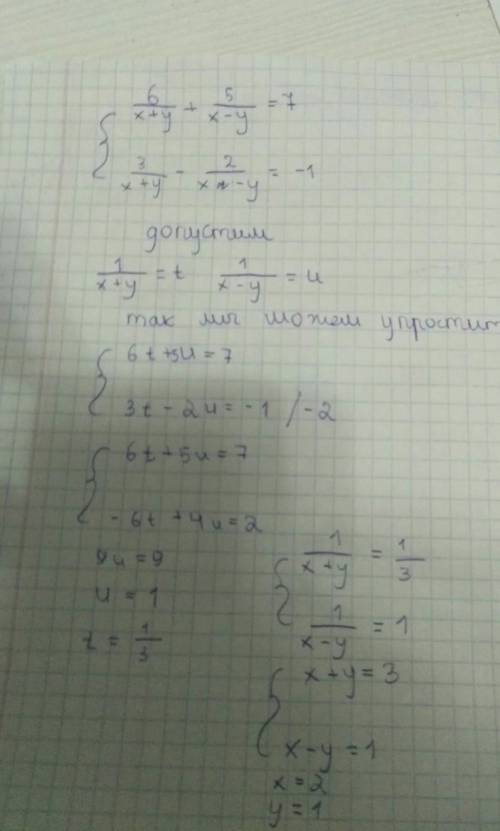 6/(x+y) + 5/(x-y) = 7
3/(x+y) - 2/(x-y) = -1
допустим
1/(x+y) = t 1/(x-y) = u
так мы можем упростит
6t+5u=7
3t-2u=-1 /-2
6t+5u=7
-6t+4u=2
9u=9
u=1
t = 1/3
1/(x+y) = 1/3
1/(x-y) = 1
x+y=3
x-y=1
x=2
y=1